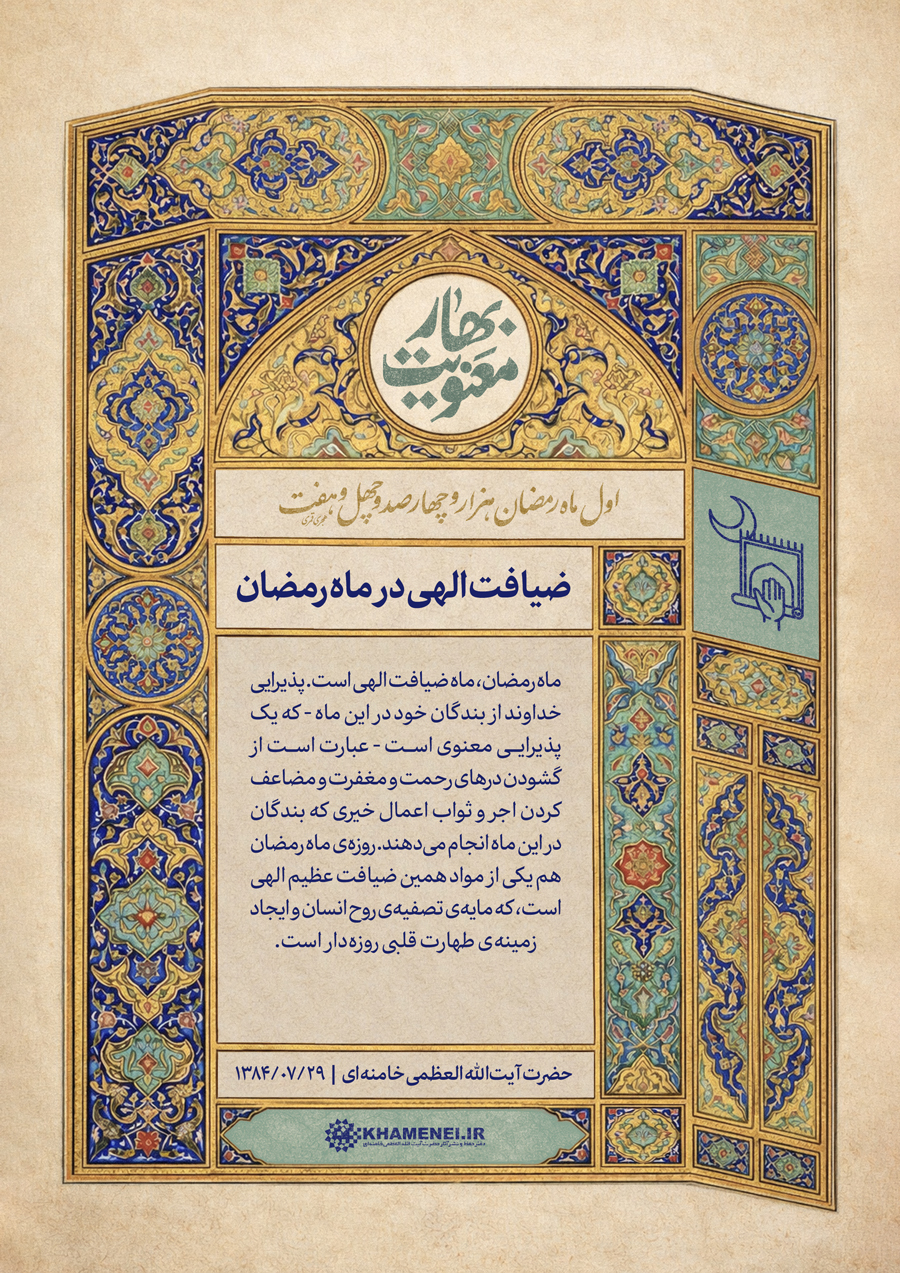 بهار
معنویت
اول ماه رمضان هزار و چهارصد و چهل و هفت
هجری قمری
ضیافت الهی در ماه رمضان
ماه رمضان، ماه ضیافت الهی است. پذیرایی
خداوند از بندگان خود در این ماه - که یک
پذیرایی معنوی است - عبارت است از
گشودن درهای رحمت و مغفرت و مضاعف
کردن اجر و ثواب اعمال خیری که بندگان
در این ماه انجام می‌دهند. روزه‌ی ماه رمضان
هم یکی از مواد همین ضیافت عظیم الهی
است، که مایه‌ی تصفیه‌ی روح انسان و ایجاد
زمینه‌ی طهارت قلبی روزه‌دار است.
حضرت آیت‌الله العظمی خامنه‌ای | ۱۳۸۴/۰۷/۲۹
KHAMENEI.IR